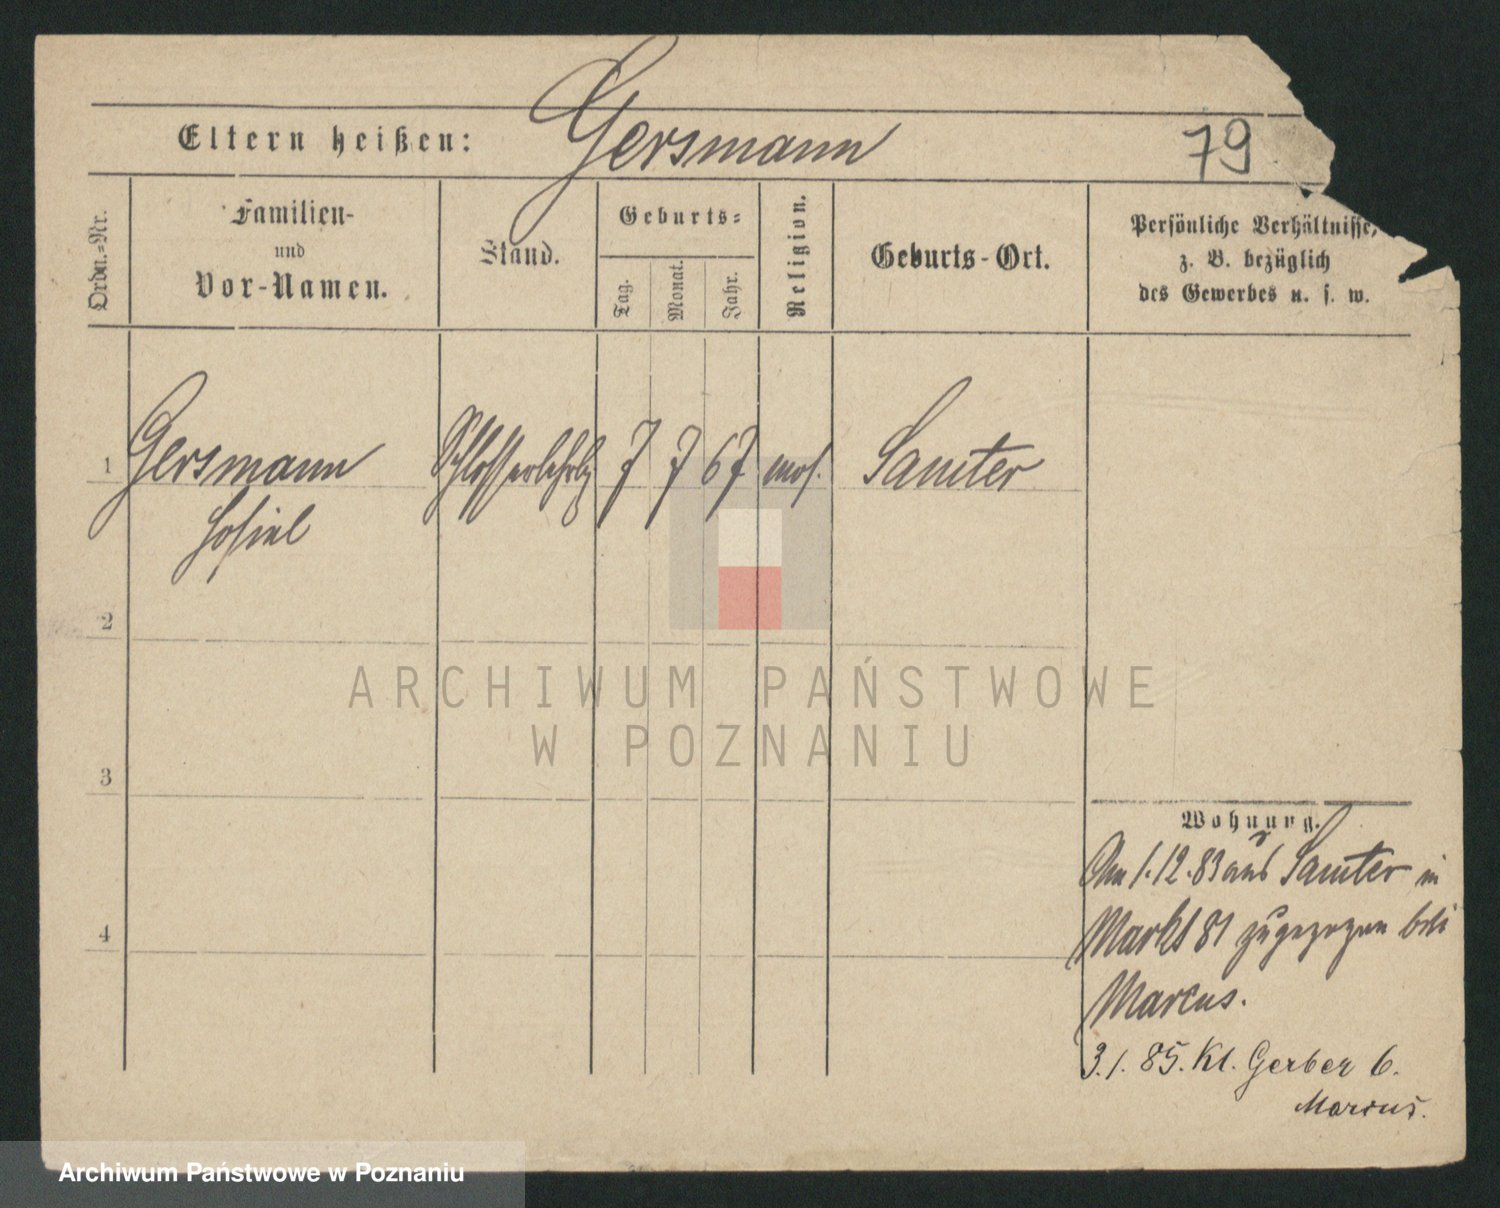 Eltern heißen: Gersmann 79
Ordn.-Nr.
Familien-
und
Vor-Namen.
Stand.
Geburts-
Tag. Monat. Jahr.
Religion.
Geburts-Ort.
Persönliche Verhältnisse,
z. B. bezüglich
des Gewerbes u. s. w.
1 Gersmann Schlosserlehrlg 7 7 67 mos. Samter
2
3
4
Wohnung.
Am 1.12.83 aus Samter in
Markt 81 zugezogen bei
Marcus.
3.1.85. Kl. Gerber 6.
Marcus.
ARCHIWUM PAŃSTWOWE
W POZNANIU
Archiwum Państwowe w Poznaniu